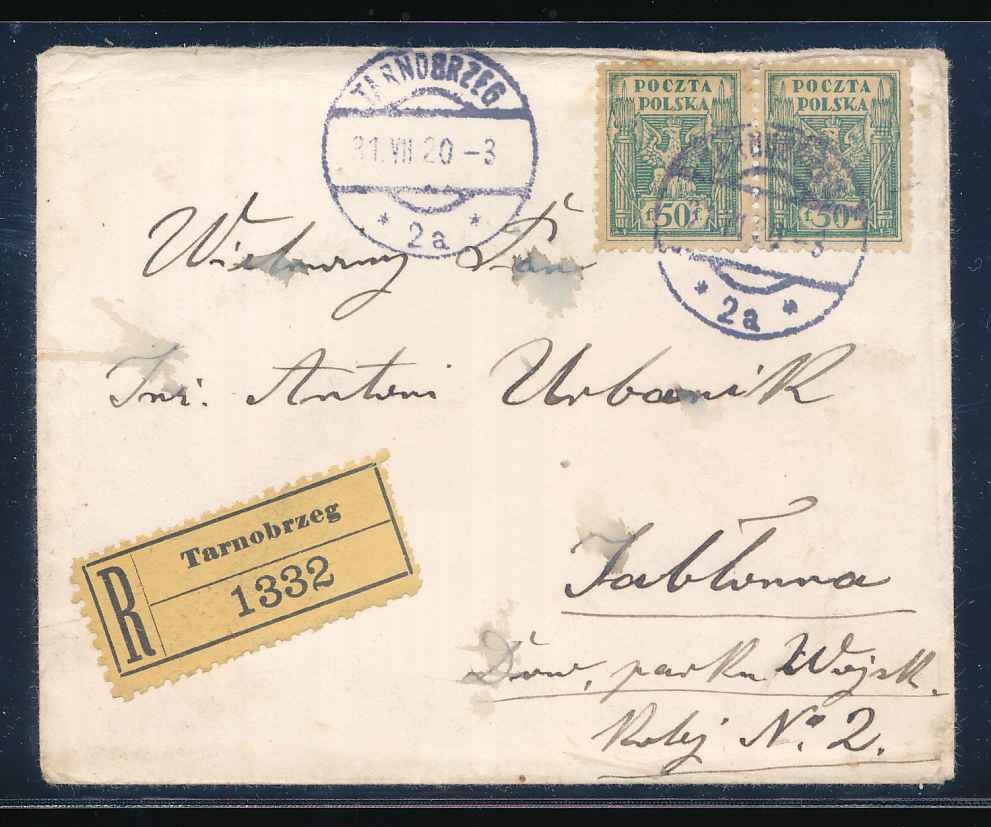 TARNOBRZEG
31.VII.20-3
* 2a *
POCZTA
POLSKA
50
POCZTA
POLSKA
50
* 2a *
Wielmożny Pan
Inż. Antoni Urbanik
R
Tarnobrzeg
1332
Jabłonna
Dow. parku Wojsk.
Kolej No. 2.